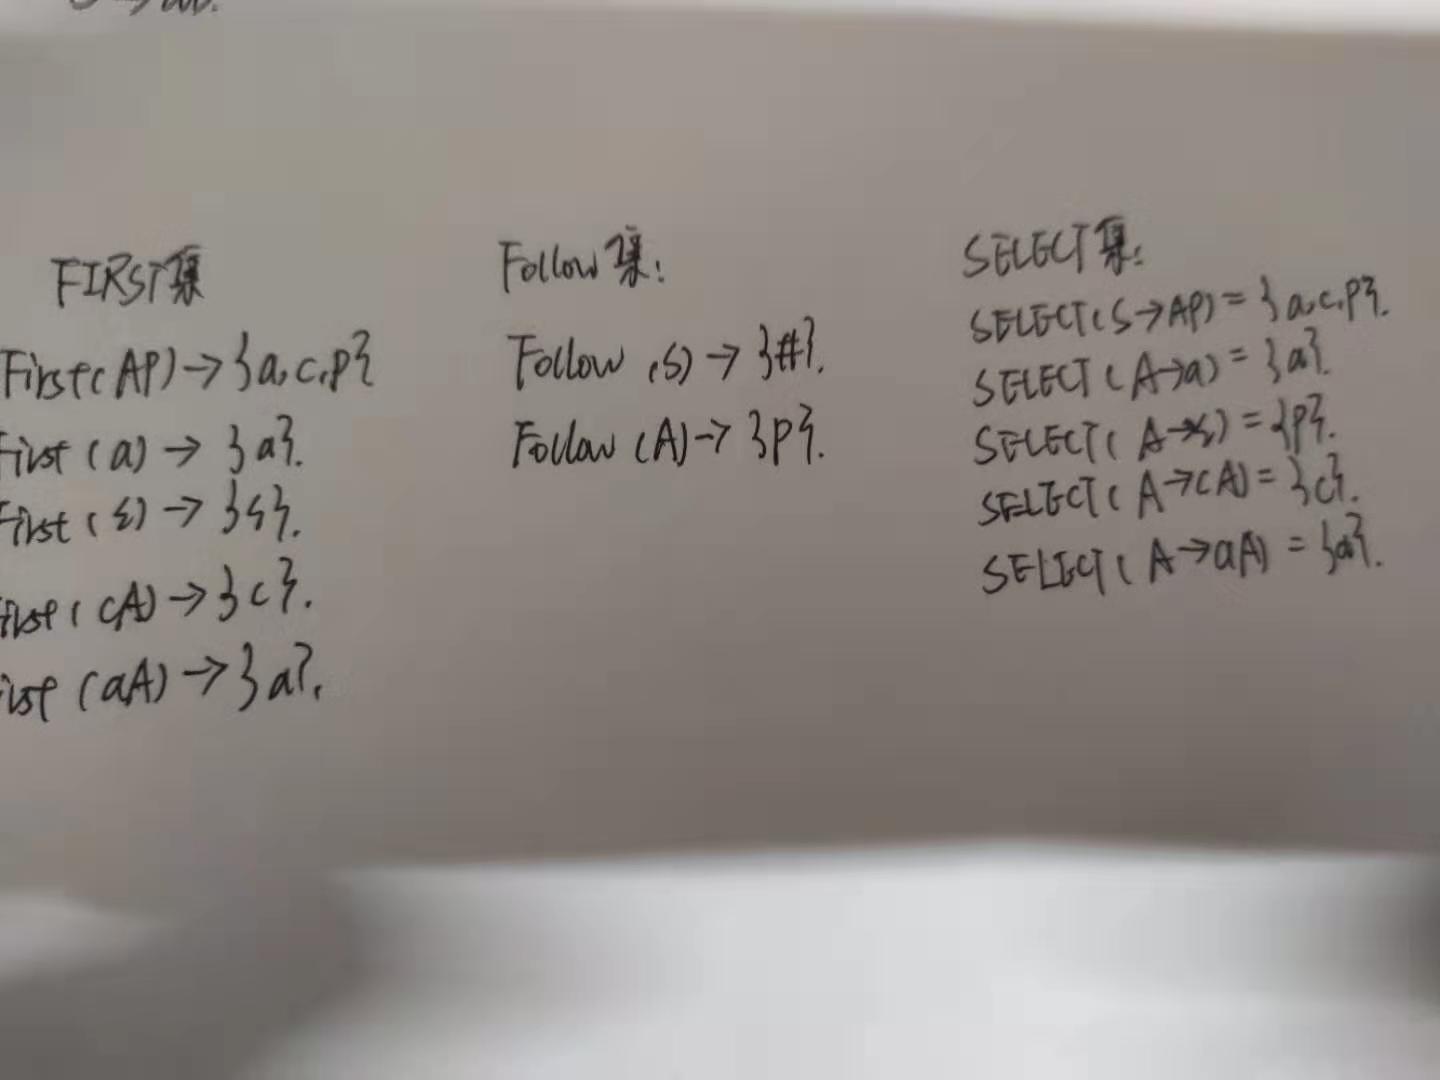 FIRST集
First(AP)→{a,c,p}
First(a)→{a}.
First(ε)→{ε}.
First(cA)→{c}.
First(aA)→{a}.
Follow集:
Follow(S)→{#}.
Follow(A)→{p}.
SELECT集:
SELECT(S→AP)={a,c,p}.
SELECT(A→a)={a}.
SELECT(A→ε)={p}.
SELECT(A→cA)={c}.
SELECT(A→aA)={a}.